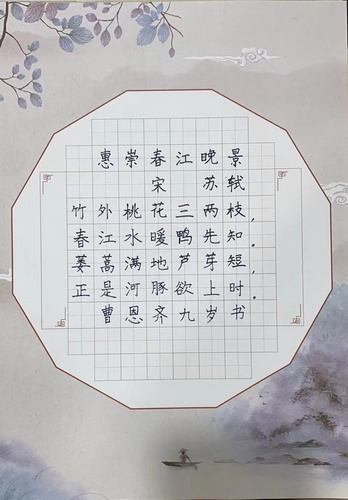 惠崇春江晚景
宋 苏轼
竹外桃花三两枝，
春江水暖鸭先知。
蒌蒿满地芦芽短，
正是河豚欲上时。
曹恩齐九岁书